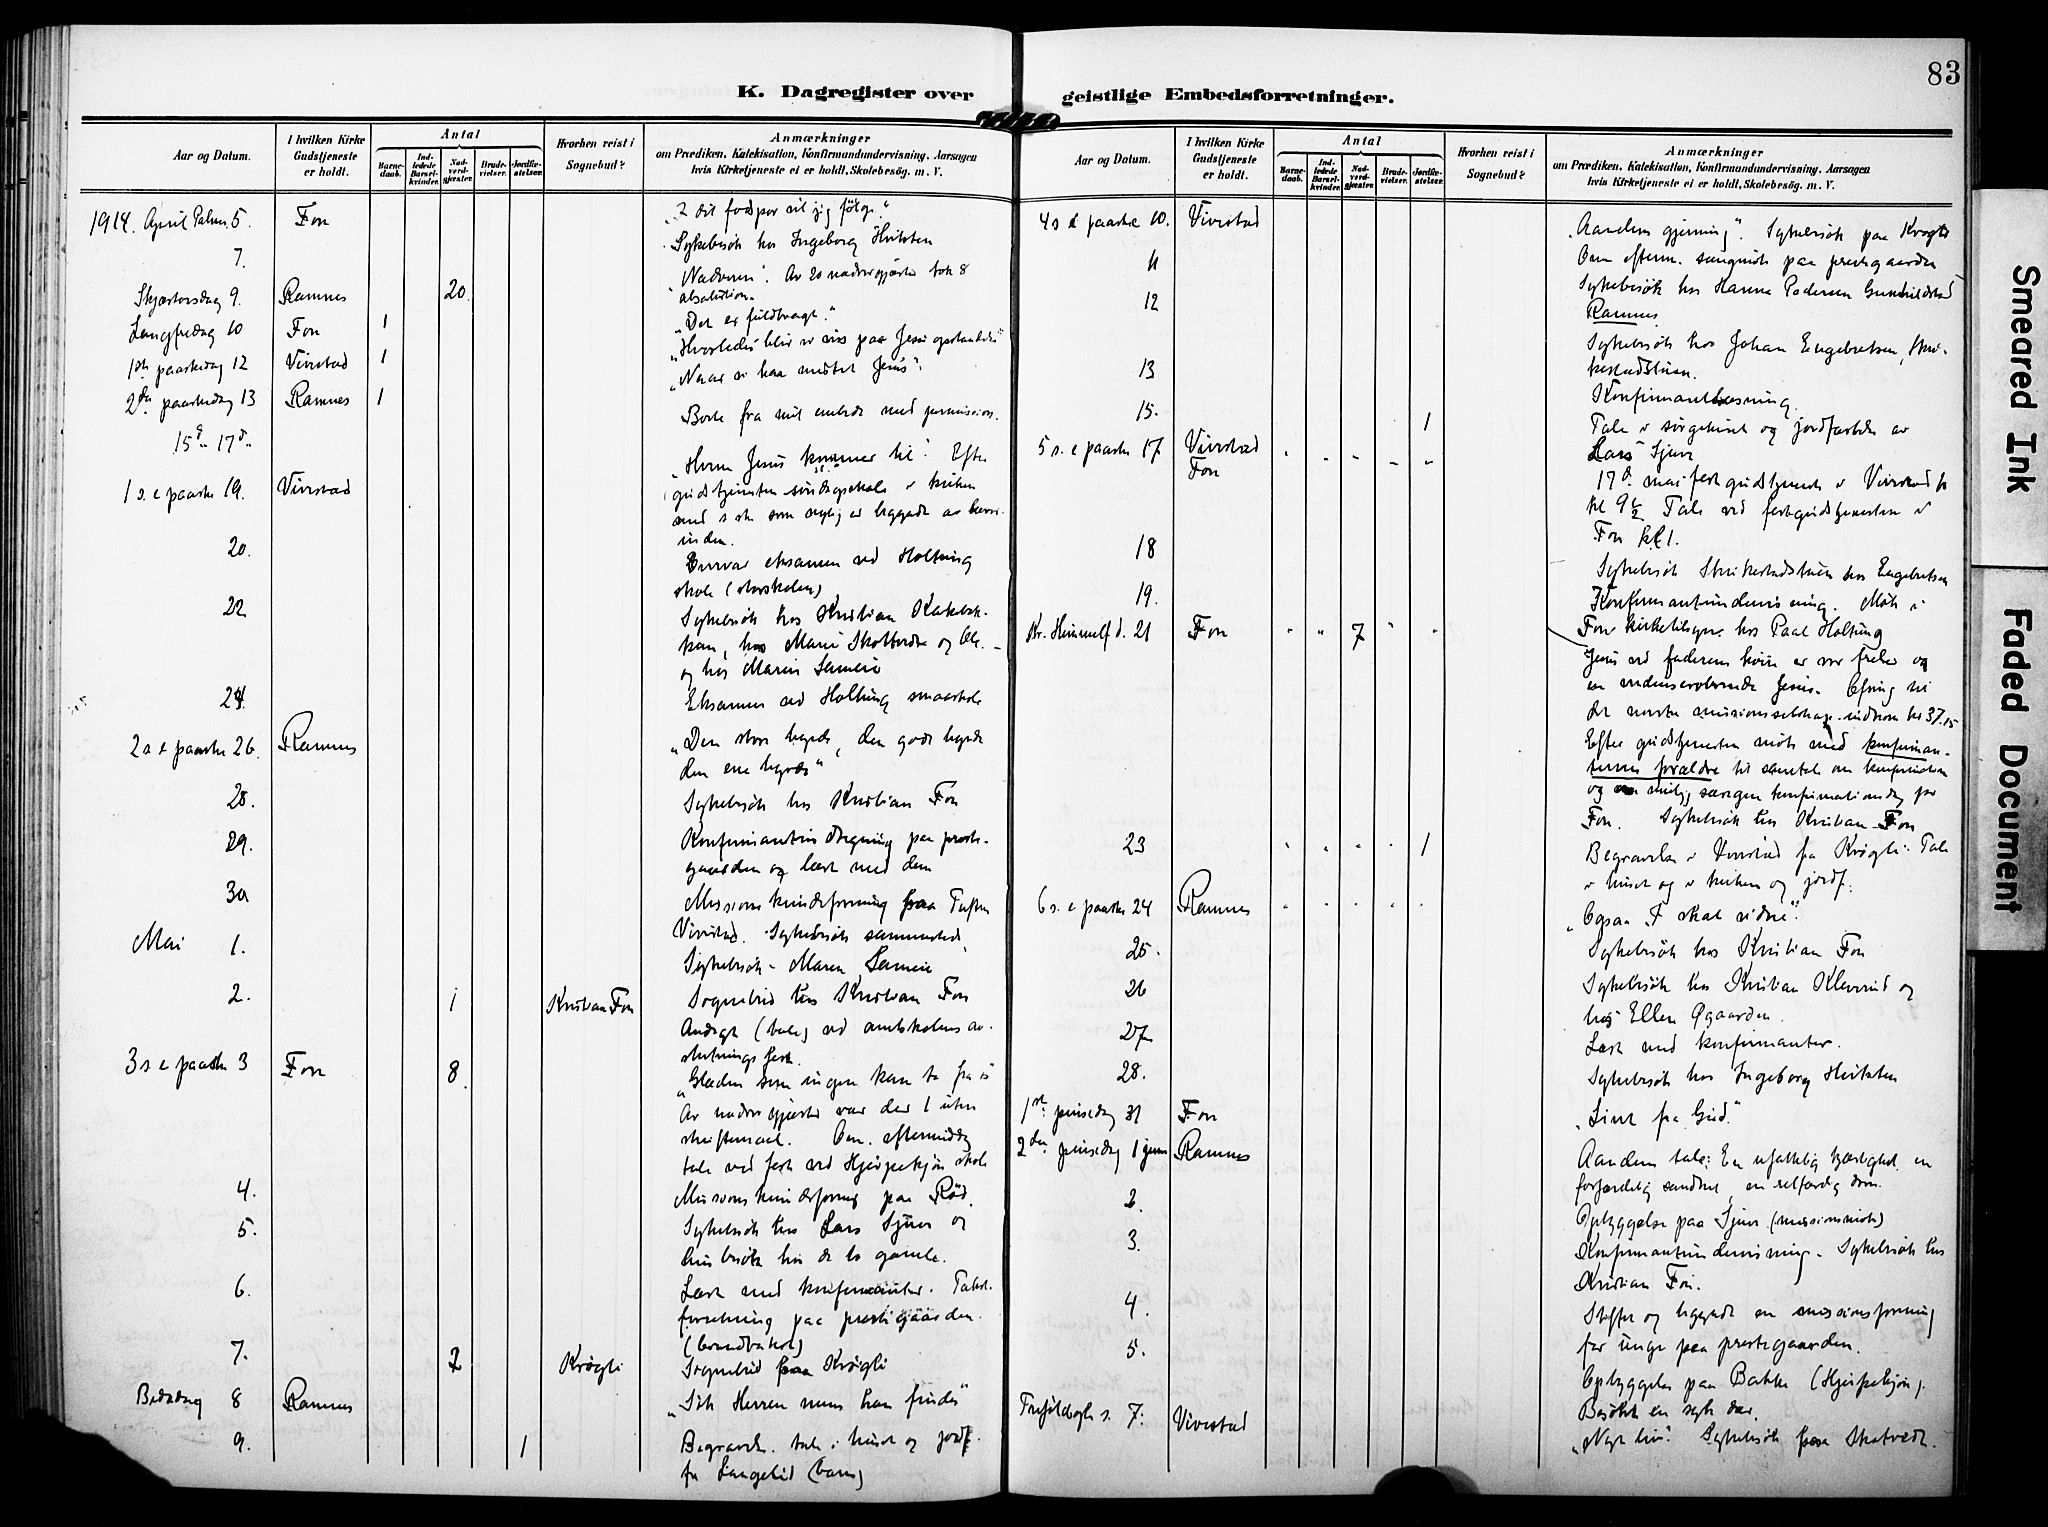 83
K. Dagregister over geistlige Embedsforretninger.
Aar og Datum.
I hvilken Kirke Gudstjeneste er holdt.
Antal
Barne-daab.
Ind-ledede Barsel-kvinder.
Nad-verd-gjæster.
Brude-vielser.
Jordfæ-stelser.
Hvorhen reist i Sognebud?
Anmærkninger
om Prædiken, Katekisation, Konfirmandundervisning, Aarsagen
hvis Kirketjeneste ei er holdt, Skolebesøg. m. V.
1914. April Palmes 5. Fon "I dit fodspor vil jeg følge."
7. Sykebesøk hos Ingeborg Hvitsten
Skjærtorsdag 9. Ramnes 20. "Nadveren". Av 20 nadvergjæster tok 8
absolution.
Langfredag 10 Fon 1 "Det er fuldbragt."
1ste paaskedag 12 Vivestad 1 "Hvorledes blir vi viss paa Jesu opstandelse"
2den paaskedag 13 Ramnes 1 "Naar vi har mistet Jesus".
15de - 17de Borte fra mit embede med permission.
1 s. e paaske 19. Vivestad "Hvem Jesus kommer til". Efter
gudstjenesten søndagsskole i kirken
med
inden.
20. eksamen ved Holtung
skole (storskolen)
22 Sykebesøk hos Kristian
og hos Maren
24. Eksamen ved Holtung smaaskole
2 s e paaske 26. Ramnes "Den store hyrde, den gode hyrde
den ene hyrde"
28. Sykebesøk hos Kristian Fon
29. paa preste-
gaarden og læst med dem
30 Missionskvindeforening paa
Vivestad. Sykebesøk sammesteds.
Mai 1. Sykebesøk - Maren
2. 1 Kristian Fon Sognebud hos Kristian Fon
Andagt (tale) ved amtskolens av-
slutningsfest.
3 s e paaske 3 Fon 8. "Glæden som ingen kan ta fra os"
Av nadvergjæster var der 1 uten
skriftemaal. Om eftermiddag
tale ved fest ved Hjerpekjøn skole
4. Missionskvindeforening paa Rød.
5. Sykebesøk hos Lars Sjuve og
husbesøk hos de to gamle.
6. Læst med konfirmanter.
forretning paa prestegaarden.
7. 2 Krøgli Sognebud paa Krøgli
Bededag 8 Ramnes "Søk Herren mens han findes"
9. 1 Begravelse. tale i huset og jordf.
fra (barn)
Aar og Datum.
I hvilken Kirke Gudstjeneste er holdt.
Antal
Barne-daab.
Ind-ledede Barsel-kvinder.
Nad-verd-gjæster.
Brude-vielser.
Jordfæ-stelser.
Hvorhen reist i Sognebud?
Anmærkninger
om Prædiken, Katekisation, Konfirmandundervisning, Aarsagen
hvis Kirketjeneste ei er holdt, Skolebesøg. m. V.
4 s e paaske 10. Vivestad "Aandens gjerning". Sykebesøk paa Krøgli
11 Om efterm. paa prestegaarden
12 Sykebesøk hos Hanna Pedersen Gunhildstad
Ramnes
13 Sykebesøk hos Johan Engebretsen,
15. 1 Konfirmantlesning.
Tale i sørgehuset og jordfæstelse av
Lars Sjuve
5 s. e paaske 17 Vivestad 17de mai festgudstjeneste i Vivestad k
Fon kl 9½ Tale ved festgudstjenesten i
Fon kl 1.
18 Sykebesøk hos Engebretsen
19. Konfirmantundervisning. Møte i
Fon kirketilsyn hos Paal Holtung
Kr. Himmelf d. 21 Fon 7 Jesus ved faderens høire er vor frelser og
en Jesus. Ofring til
det norske missionsselskap - indkom kr 37.15
Efter gudstjenesten møte med konfirman-
ternes forældre til samtale om konfirmation
og særegen konfirmationsdag for
Fon. Sykebesøk hos Kristian Fon
23 1 Begravelse i Vivestad fra Krøgli. Tale
i huset og i kirken og jordf.
6 s. e paaske 24 Ramnes "Ogsaa I skal vidne".
25. Sykebesøk hos Kristian Fon
26 Sykebesøk hos Kristian Kleverud og
hos Ellen Øgaarden.
27 Læst med konfirmanter.
28. Sykebesøk hos Ingeborg Hvitsten
1ste pinsedag 31 Fon "Livet fra Gud."
2den pinsedag 1 juni Ramnes Aandens tale: En ufattelig kjærlighet, en
forfærdelig sandhet, en retfærdig dom.
2. Opbyggelse paa Sjuve (missionsmøte)
3. Konfirmantundervisning. Sykebesøk hos
Kristian Fon.
4. Stiftet og begyndt en missionsforening
for unge paa prestegaarden.
5. Opbyggelse paa Bakke (Hjerpekjøn).
Besøkt en syk der.
Trefoldigh s. 7. Vivestad "Nyt liv". Sykebesøk paa Skatvedt.
Smeared Ink
Faded Document